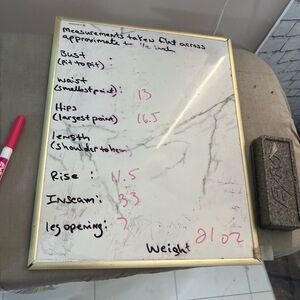 Measurements taken flat across
approximate to 1/2 inch
Bust :
(Pit to pit)
Waist
(smallest point) : 13
Hips
(largest point) : 16.5
length
(shoulder to hem) :
Rise : 11.5
Inseam : 33
leg opening : 7
Weight 21 oz